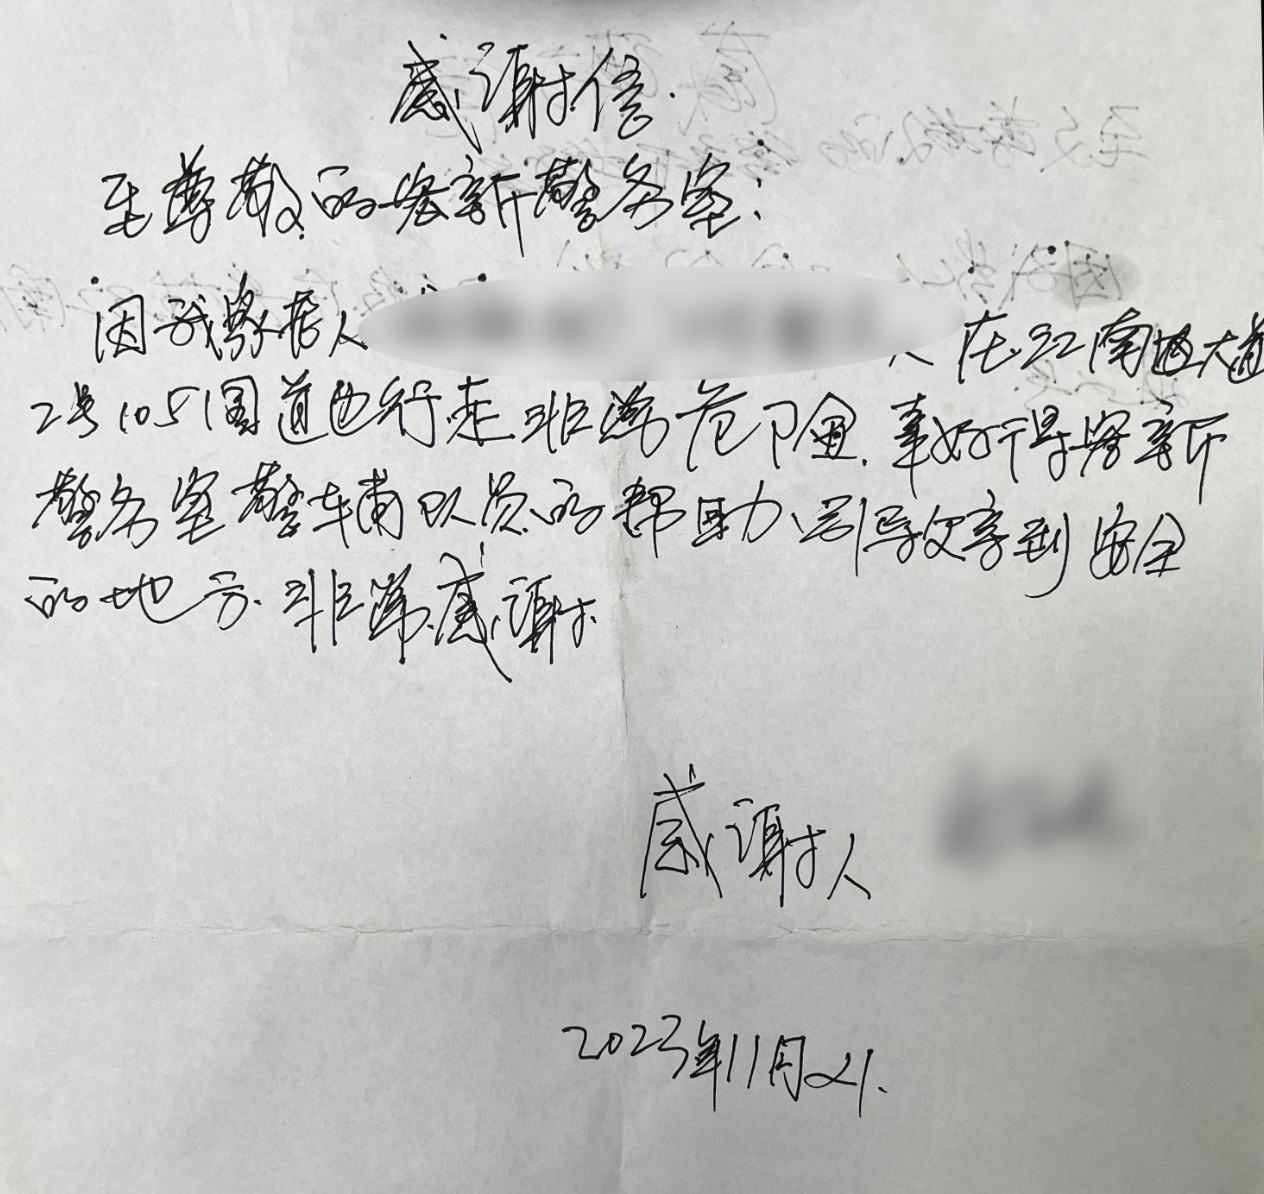 感谢信.
至尊敬的客新警务室:
因我
人在江南大道
2号105国道边行走非常危险.幸好得客新
警务室警辅队员的帮助引导父亲到安全
的地方.非常感谢.
感谢人
2023年11月21.